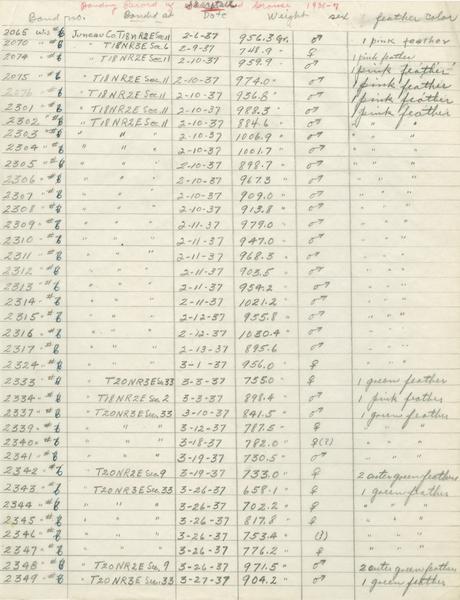 Banding Record of Sharptail Grouse 1936-7
Band no. Banded at Date Weight sex feather color
2065 wis #6 Juneau Co T18NR2E Sec.11 2-6-37 956.3 gr. ♂ 1 pink feather
2070 " #6 " T18NR3E Sec.6 2-9-37 748.9 " ♀ 1 pink feather
2074 " #6 " T18NR2E Sec.11 2-10-37 959.9 " ♂ 1 pink feather
2075 " #6 " T18NR2E Sec.11 2-10-37 974.0 " ♂ 1 pink feather
2076 " #6 " T18NR2E Sec.11 2-10-37 936.8 " ♂ 1 pink feather
2301 " #6 " T18NR2E Sec.11 2-10-37 988.3 " ♂ 1 pink feather
2302 " #6 " T18NR2E Sec.11 2-10-37 884.6 " ♂ " " "
2303 " #6 " " " 2-10-37 1006.9 " ♂ " " "
2304 " #6 " " " 2-10-37 1001.7 " ♂ " " "
2305 " #6 " " " 2-10-37 898.7 " ♂ " " "
2306 " #6 " " " 2-10-37 967.3 " ♂ " " "
2307 " #6 " " " 2-10-37 909.0 " ♂ " " "
2308 " #6 " " " 2-10-37 913.8 " ♂ " " "
2309 " #6 " " " 2-11-37 979.0 " ♂ " " "
2310 " #6 " " " 2-11-37 947.0 " ♂ " " "
2311 " #6 " " " 2-11-37 968.3 " ♂ " " "
2312 " #6 " " " 2-11-37 903.5 " ♂ " " "
2313 " #6 " " " 2-11-37 954.2 " ♂ " " "
2314 " #6 " " " 2-11-37 1021.2 " ♂ " " "
2315 " #6 " " " 2-12-37 955.8 " ♂ " " "
2316 " #6 " " " 2-12-37 1030.4 " ♂ " " "
2317 " #6 " " " 2-13-37 895.6 " ♂ " " "
2324 " #6 " " " 3-1-37 956.0 " ♀ " " "
2333 " #6 " T20NR3E Sec.33 3-3-37 755.0 " ♀ 1 green feather
2334 " #6 " T18NR2E Sec.2 3-3-37 898.4 " ♂ 1 pink feather
2337 " #6 " T20NR3E Sec.33 3-10-37 841.5 " ♂ 1 green feather
2339 " #6 " " " 3-12-37 787.5 " ♀ " " "
2340 " #6 " " " 3-18-37 782.0 " ♀(?) " " "
2341 " #6 " " " 3-19-37 730.5 " ♂ " " "
2342 " #6 " T20NR2E Sec.9 3-19-37 733.0 " ♀ 2 outer green feathers
2343 " #6 " T20NR3E Sec.33 3-26-37 658.1 " ♀ 1 green feather
2344 " #6 " " " 3-26-37 702.2 " ♀ " " "
2345 " #6 " " " 3-26-37 817.8 " ♂ " " "
2346 " #6 " " " 3-26-37 753.4 " (?) " " "
2347 " #6 " " " 3-26-37 776.2 " ♀ " " "
2348 " #6 " T20NR2E Sec.9 3-26-37 971.5 " ♂ 2 outer green feathers
2349 " #6 " T20NR3E Sec.33 3-27-37 904.2 " ♂ 1 green feather